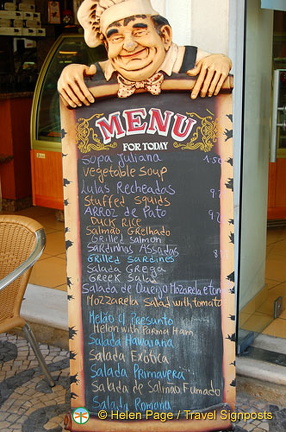 MENU
FOR TODAY
Sopa Juliana 1.50
vegetable soup
Lulas Recheadas 9
stuffed squids
ARROZ de Pato 9
Duck Rice
Salmão Grelhado
Grilled salmon
Sardinhas Assadas 8
Grilled Sardines
Salada Grega
Greek Salad
Salada de Queijo Mozarela e tom
Mozzarela Salad with tomato
Melão c/ Presunto
Melon with Parma Ham
Salada Hawaiana
Salada Exotica
Salada Primavera
Salada de Salmão Fumado
Salada Romana
© Helen Page / Travel Signposts